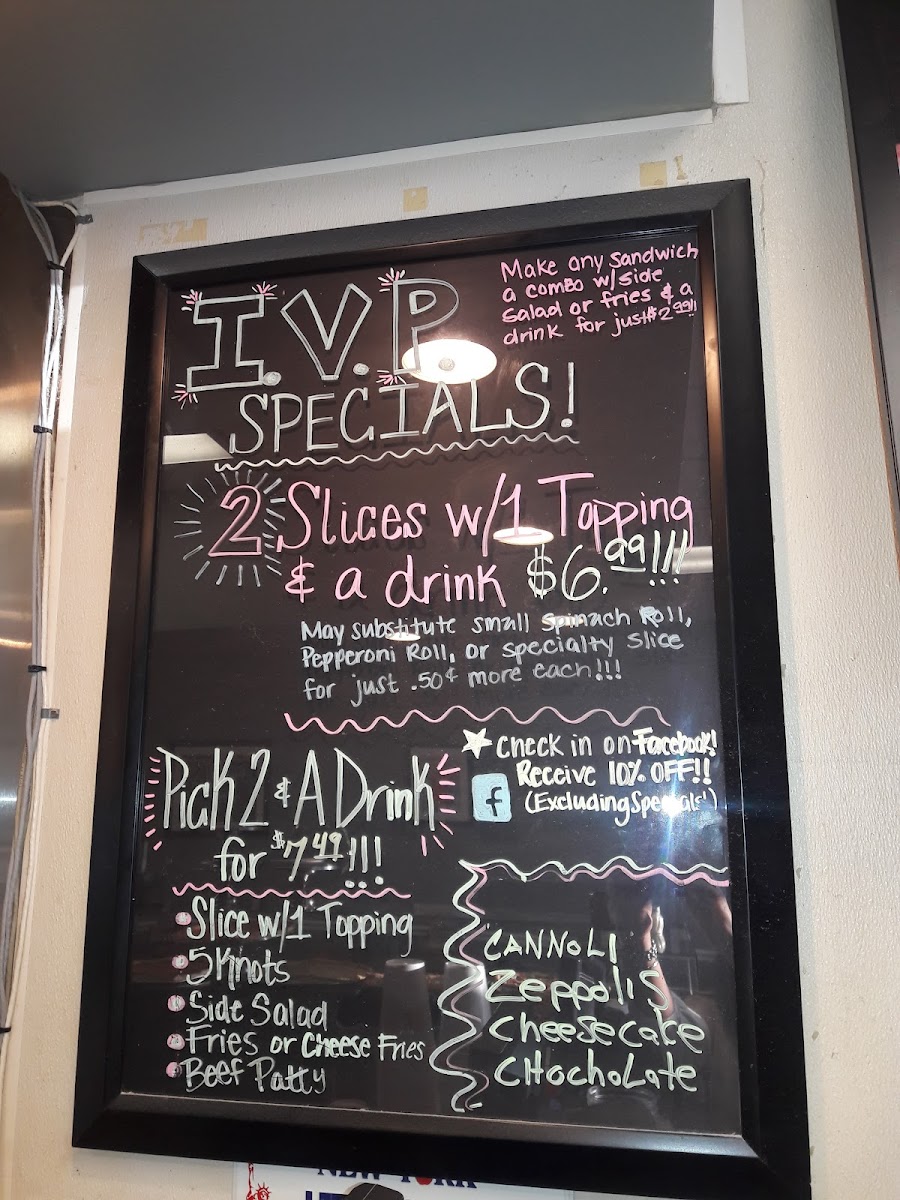 I.V.P
SPECIALS!
Make any sandwich
a combo w/side
salad or fries & a
drink for just $2.99!!
2 Slices w/1 Topping
& a drink $6.99!!!
May substitute small spinach Roll,
Pepperoni Roll, or specialty slice
for just .50¢ more each!!!
Pick 2 & A Drink
for $7.49!!!
Slice w/1 Topping
5 Knots
Side Salad
Fries or Cheese Fries
Beef Patty
Check in on Facebook!
Receive 10% OFF!!
(Excluding Specials!)
f
CANNOLI
Zeppolis
CheeseCake
CHochoLate
NEW YORK